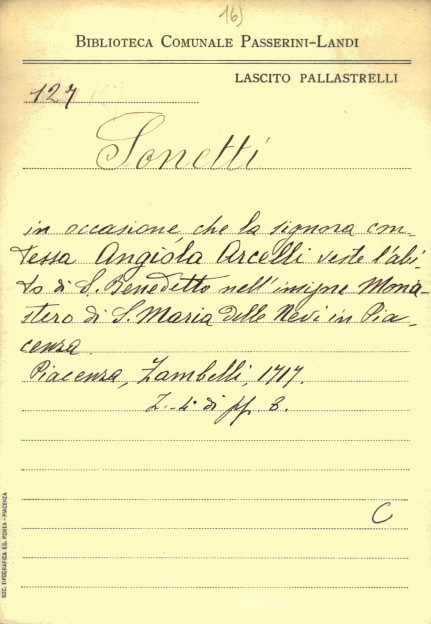 16)
BIBLIOTECA COMUNALE PASSERINI-LANDI
LASCITO PALLASTRELLI
127
Sonetti
in occasione che la signora con-
tessa Angiola Arcelli veste l'abi-
to di S. Benedetto nell'insigne Mona-
stero di S. Maria delle Nevi in Pia-
cenza.
Piacenza, Zambelli, 1717.
in 4° di pp. 8.
C
SOC. TIPOGRAFICA ED. PORTA - PIACENZA